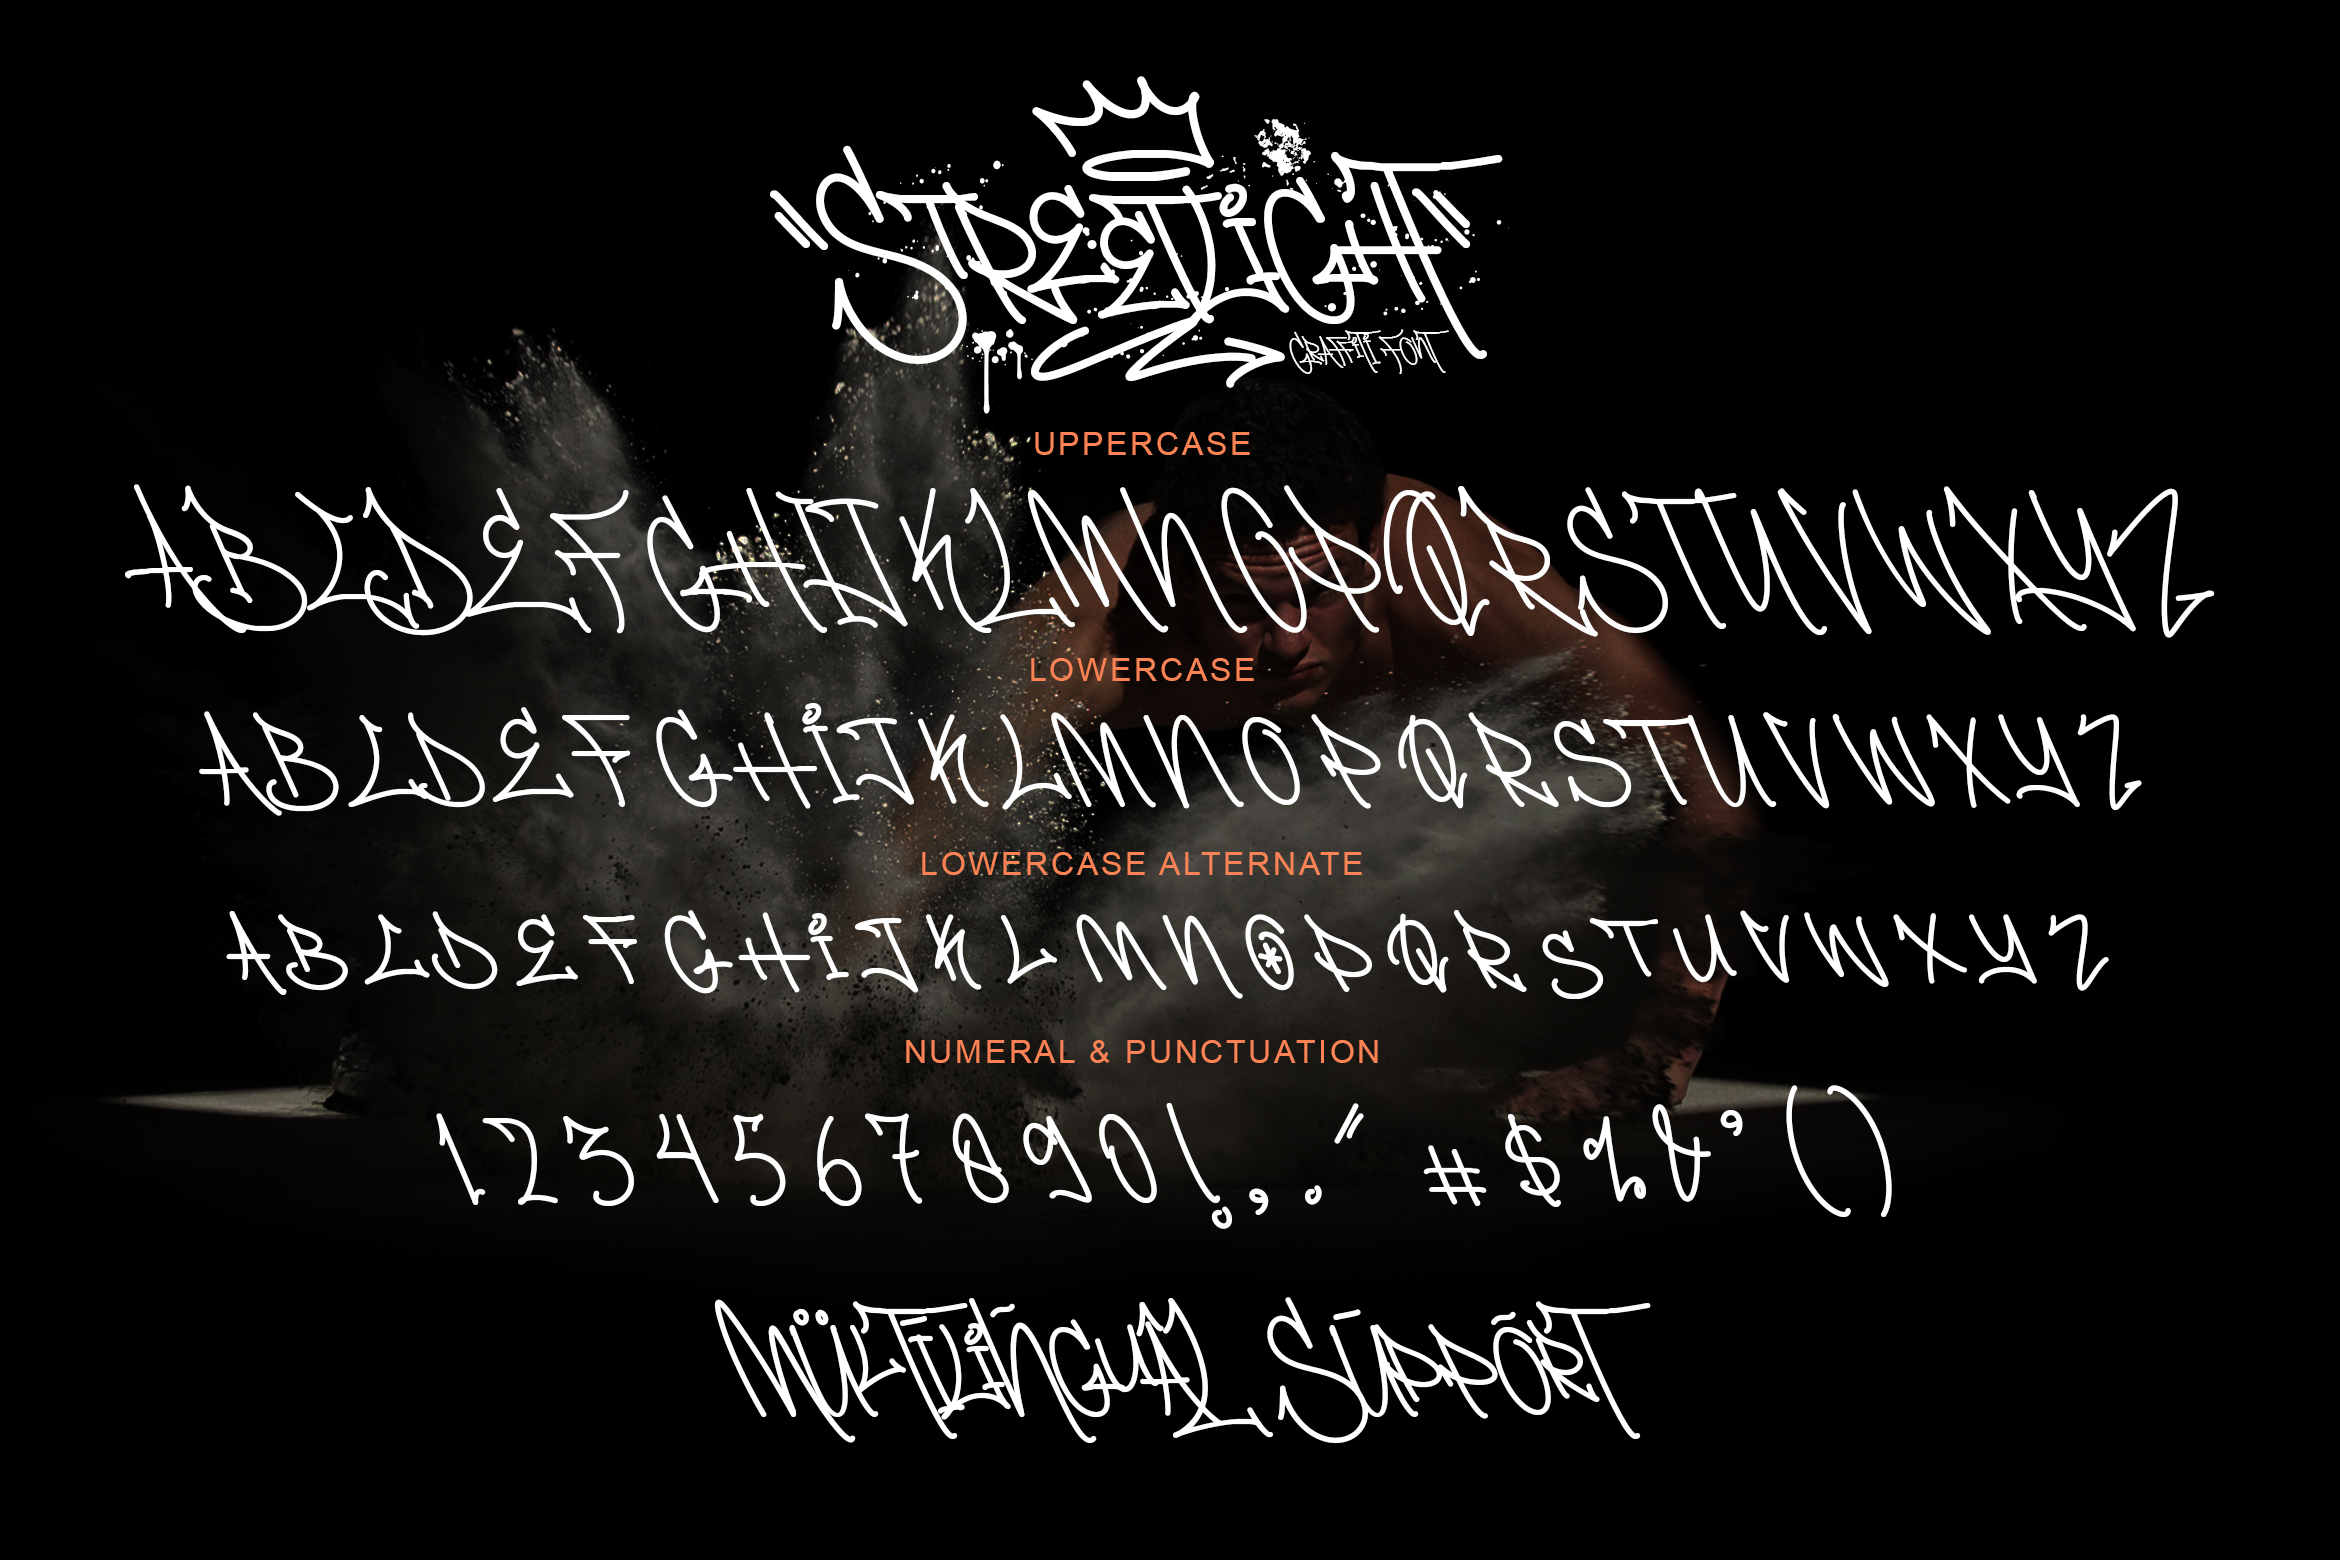 "STREETLIGHT"
GRAFFITI FONT
UPPERCASE
ABCDEFGHIJKLMNOPQRSTUVWXYZ
LOWERCASE
ABCDEFGHiJKLMNOPQRSTUVWXYZ
LOWERCASE ALTERNATE
ABCDEFGHiJKLMNOPQRSTUVWXYZ
NUMERAL & PUNCTUATION
1234567890!,." #$%&'()
MÜLTĪLiÑGUAL SŪPPÕRT